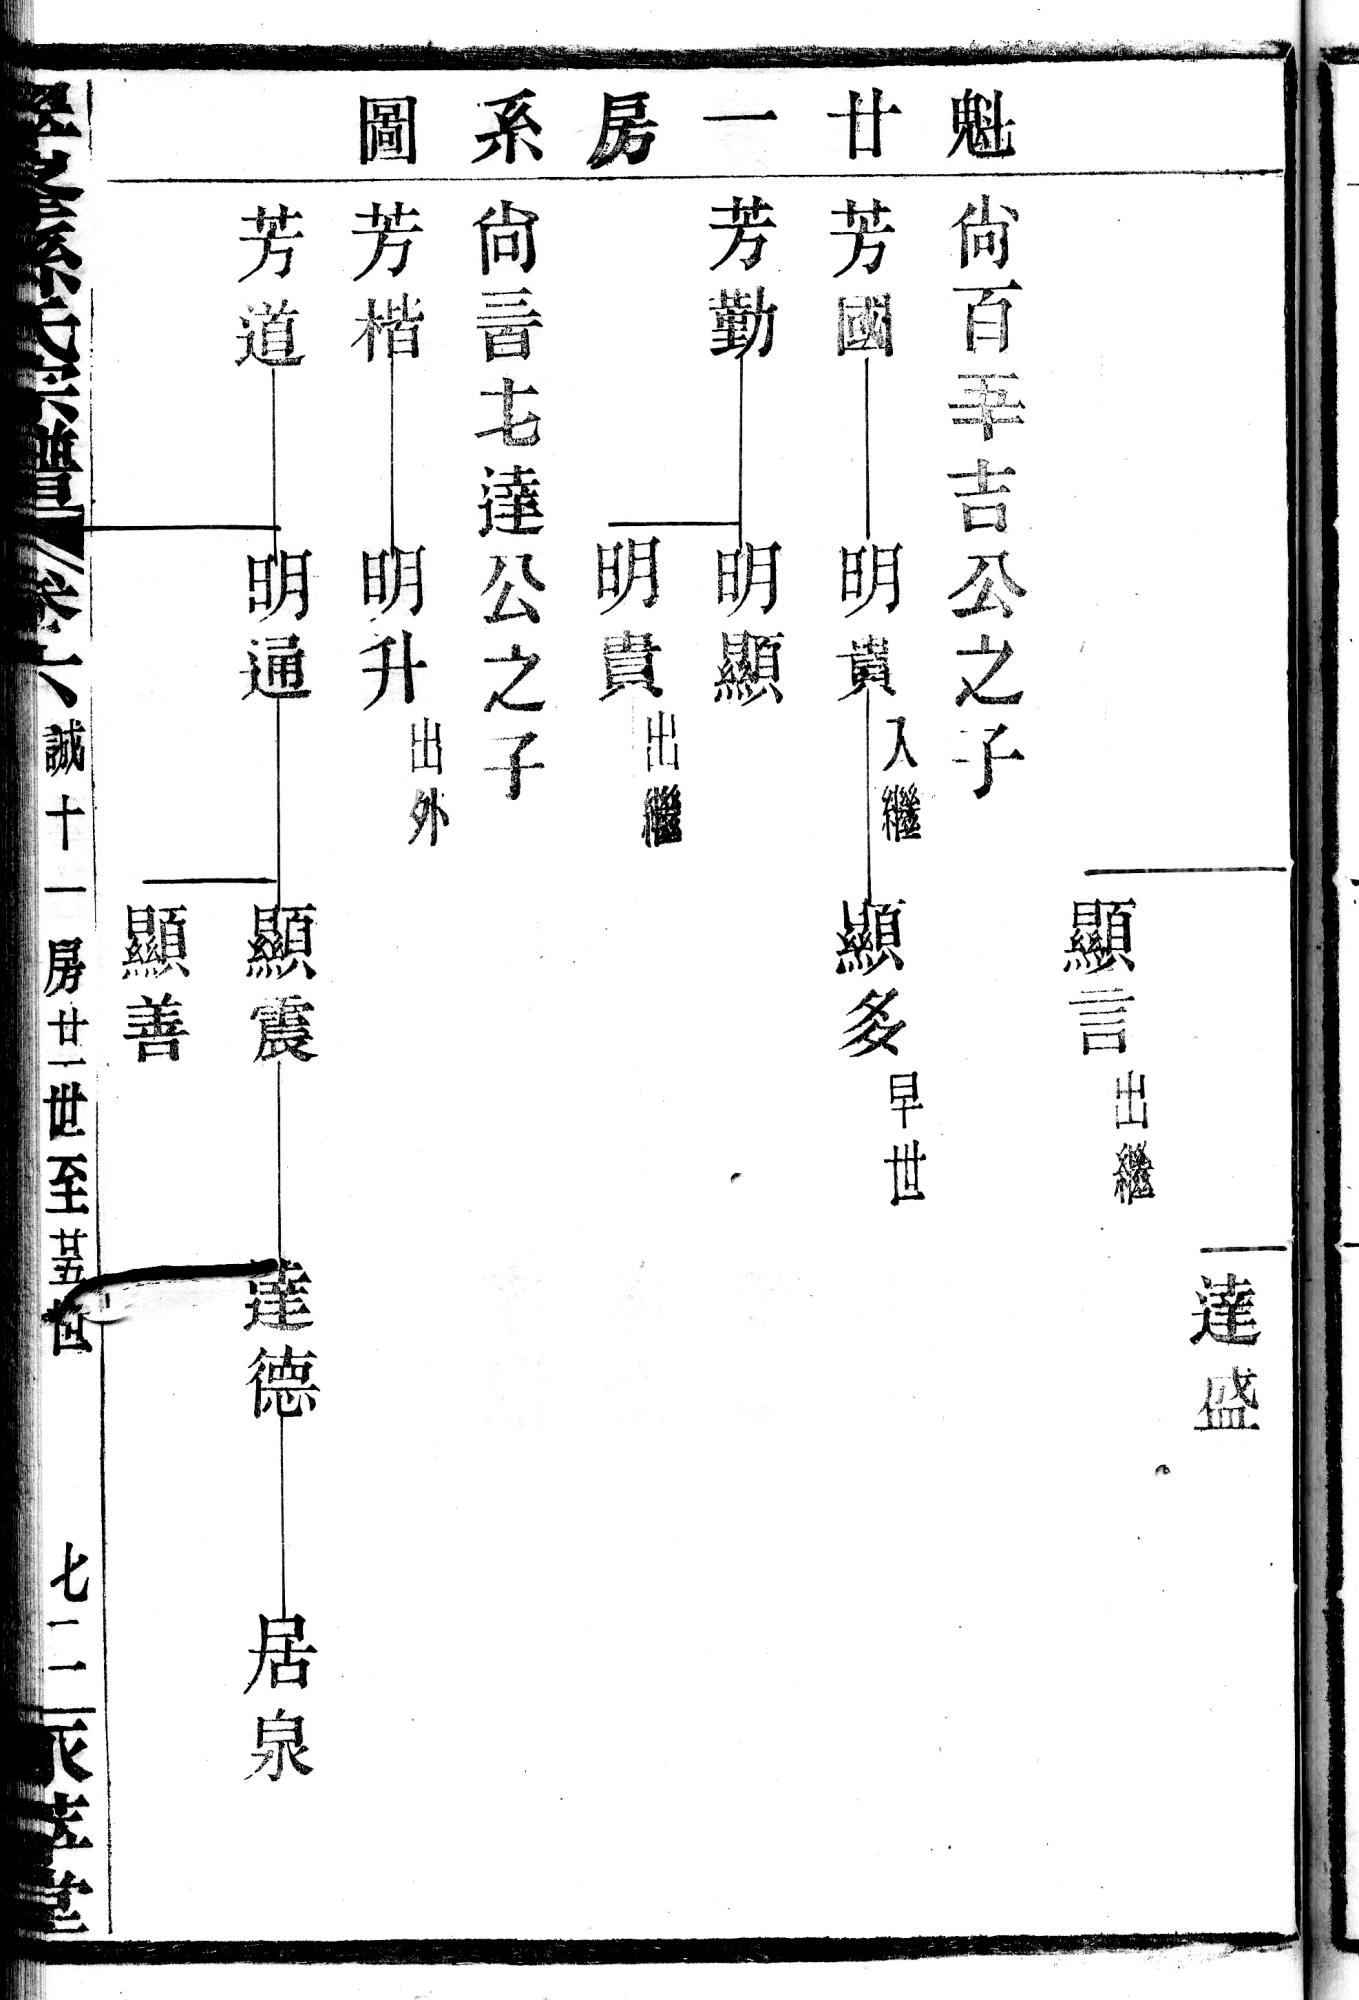 魁廿一房系圖
達盛
顯言 出繼
尙百五十吉公之子
芳國 明貴 入繼 顯多 早世
芳勤 明顯
明貴 出繼
尙三百七達公之子
芳楷 明升 出外
芳道 明通 顯震 達德 居泉
顯善
孫氏宗譜 卷六 誠十一房廿一世至廿五世